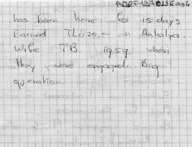 has been here for 15 days
Earned TL 0 29.- in Antalya.
Wife TB. 1959 when
they were engaged. Big
operation.